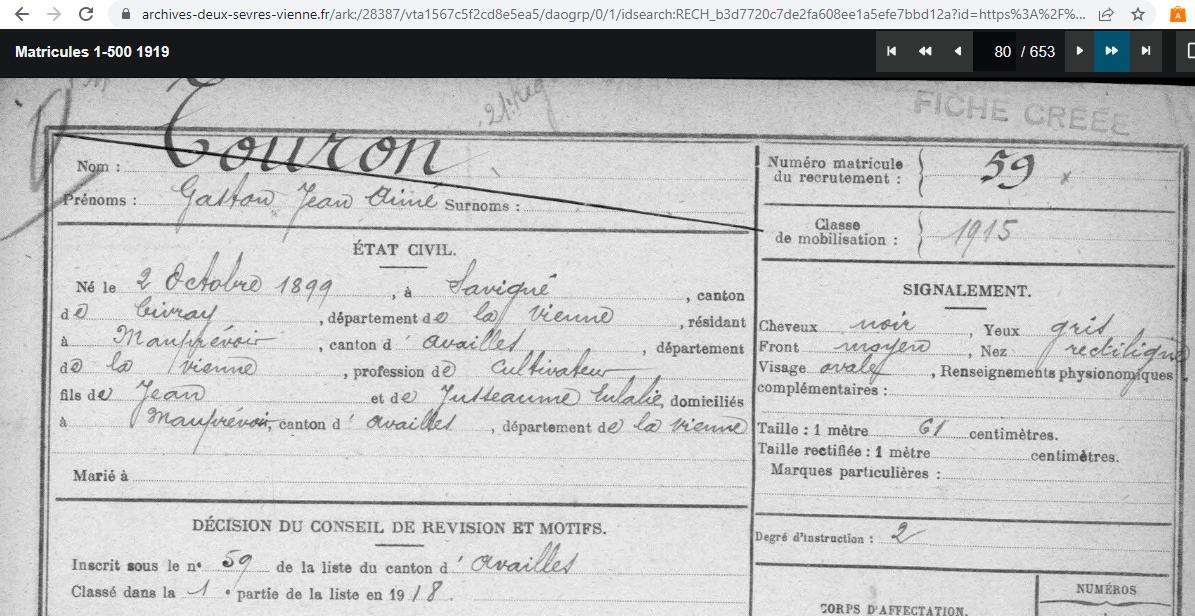 archives-deux-sevres-vienne.fr/ark:/28387/vta1567c5f2cd8e5ea5/daogrp/0/1/idsearch:RECH_b3d7720c7de2fa608ee1a5efe7bbd12a?id=https%3A%2F%...
Matricules 1-500 1919
80 / 653
FICHE CRÉÉE
Nom : Touron
Prénoms : Gaston Jean Aimé Surnoms :
Numéro matricule du recrutement : 59
Classe de mobilisation : 1915
ÉTAT CIVIL.
Né le 2 Octobre 1899, à Savigné, canton
de Civray, département de la Vienne, résidant
à Mauprévoir, canton d'Availles, département
de la Vienne, profession de Cultivateur
fils de Jean et de Jusseaume Eulalie, domiciliés
à Mauprévoir, canton d'Availles, département de la Vienne
Marié à
SIGNALEMENT.
Cheveux noir, Yeux gris
Front moyen, Nez rectiligne
Visage ovale, Renseignements physionomiques
complémentaires :
Taille : 1 mètre 61 centimètres.
Taille rectifiée : 1 mètre centimètres.
Marques particulières :
Degré d'instruction : 2
DÉCISION DU CONSEIL DE REVISION ET MOTIFS.
Inscrit sous le nº 59 de la liste du canton d'Availles
Classé dans la 1e partie de la liste en 1918.
CORPS D'AFFECTATION.
NUMÉROS